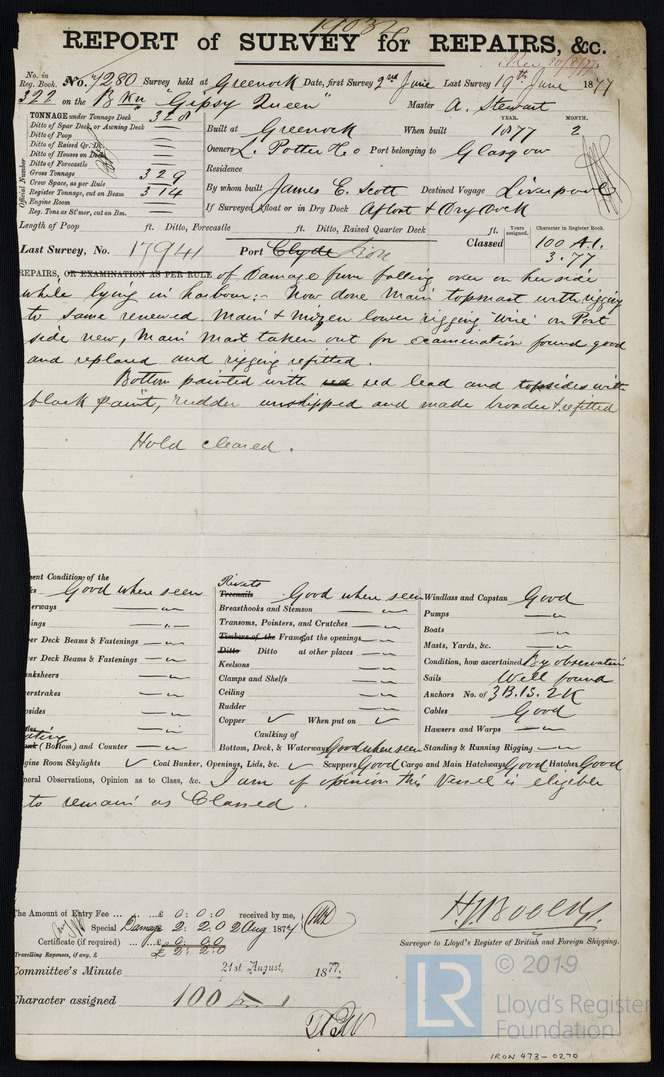 1903
REPORT of SURVEY for REPAIRS, &c.
No. in Reg. Book. No. 7280 Survey held at Greenock Date, first Survey 2nd June Last Survey 19th June 1877
322 on the Bkn "Gipsy Queen" Master A. Stewart
TONNAGE under Tonnage Deck 328
Ditto of Spar Deck, or Awning Deck
Ditto of Poop
Ditto of Raised Qr. Dk.
Ditto of Houses on Deck
Ditto of Forecastle
Gross Tonnage 329
Crew Space, as per Rule
Register Tonnage, cut on Beam 314
Engine Room
Reg. Tons as St'mer, cut on Bm.
Official Number
YEAR. MONTH.
Built at Greenock When built 1877 2
Owners L. Potter & Co Port belonging to Glasgow
Residence
By whom built James E. Scott Destined Voyage Liverpool
If Surveyed Afloat or in Dry Dock Afloat & Dry Dock
Length of Poop ft. Ditto, Forecastle ft. Ditto, Raised Quarter Deck ft.
Years assigned. Character in Register Book.
Last Survey, No. 17941 Port Clyde Iron Classed 100 A1.
3.77
REPAIRS, OR EXAMINATION AS PER RULE of Damage from falling over on her side
while lying in harbour:- Now done Main topmast with rigging
to same renewed. Main & Mizen lower rigging wire on Port
side new, Main Mast taken out for examination found good
and replaced and rigging refitted.
Bottom painted with red lead and topsides with
black paint, rudder unshipped and made broader & refitted
Hold cleared.
ent Condition of the
Good where seen
erways
ings
er Deck Beams & Fastenings
er Deck Beams & Fastenings
nksheers
erstrakes
psides
(Bottom) and Counter
Rivets
Treenails Good where seen
Breasthooks and Stemson
Transoms, Pointers, and Crutches
Timbers of the Frame at the openings
Ditto Ditto at other places
Keelsons
Clamps and Shelfs
Ceiling
Rudder
Copper ✓ When put on ✓
Caulking of
Bottom, Deck, & Waterways Good where seen
Windlass and Capstan Good
Pumps
Boats
Masts, Yards, &c.
Condition, how ascertained By observation
Sails Well found
Anchors No. of 3 B. 1 S. 2 K
Cables Good
Hawsers and Warps
Standing & Running Rigging
gine Room Skylights ✓ Coal Bunker, Openings, Lids, &c. ✓ Scuppers Good Cargo and Main Hatchways Good Hatches Good
neral Observations, Opinion as to Class, &c. I am of opinion this Vessel is eligible
to remain as Classed.
The Amount of Entry Fee ... £ 0:0:0 received by me,
Special Damage 2:2:0 2 Aug 1877
Certificate (if required) ... £ 0:0:0
Travelling Expenses, if any, £ 2:2:0
Surveyor to Lloyd's Register of British and Foreign Shipping.
Committee's Minute 21st August, 1877.
Character assigned 100
© 2019
LR
Lloyd's Register
Foundation
IRON 473-0270